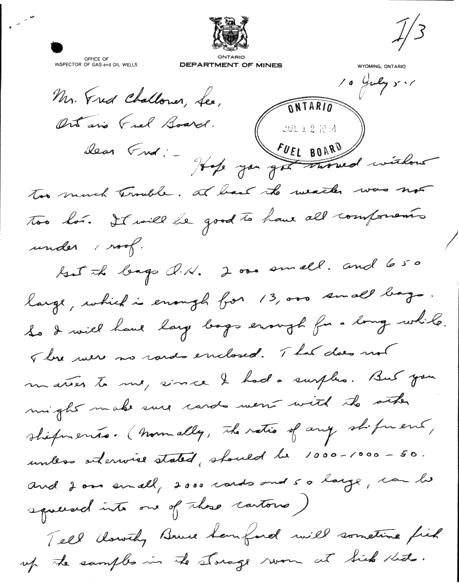 I/3
OFFICE OF
INSPECTOR OF GAS and OIL WELLS
ONTARIO
DEPARTMENT OF MINES
WYOMING, ONTARIO
10 July
Mr. Fred Challoner, Sec,
Ontario Fuel Board.
ONTARIO
JUL 12
FUEL BOARD
Dear Fred:-
Hope you got moved without
too much trouble. At least the weather was not
too hot. It will be good to have all components
under 1 roof.
Got the bags O.K. 2000 small. and 650
large, which is enough for 13,000 small bags.
So I will have large bags enough for a long while.
There were no cards enclosed. That does not
matter to me, since I had a surplus. But you
might make sure cards went with the other
shipments. (Normally, the ratio of any shipment,
unless otherwise stated, should be 1000-1000-50.
And 2000 small, 2000 cards and 50 large, can be
squeezed into one of these cartons)
Tell Dorothy Bruce will sometime pick
up the samples in the storage room at